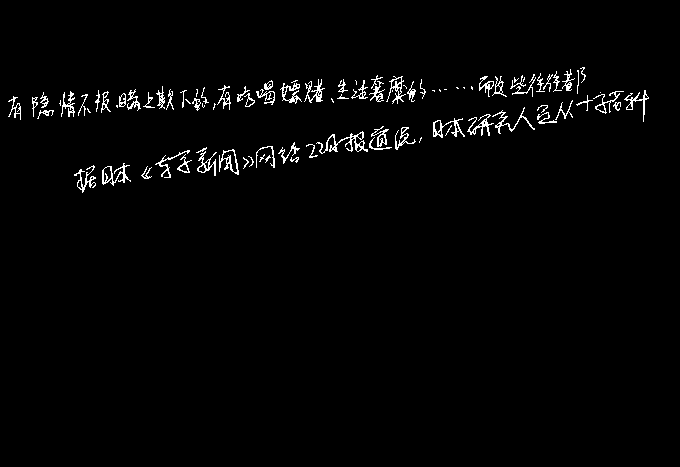 有隐情不报瞒上欺下的,有吃喝嫖赌、生活奢靡的……而这些往往都
据日本《电子新闻》网络22日报道说,日本研究人员从十字花科